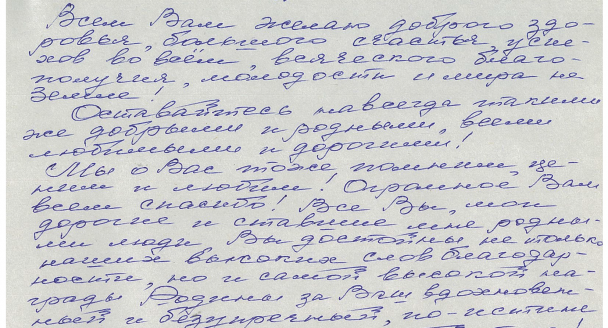 Всем Вам желаю доброго здо-
ровья, большого счастья, успе-
хов во всём, всяческого благо-
получия, молодости и мира на
Земле!
Оставайтесь навсегда такими
же добрыми и родными, всеми
любимыми и дорогими!
Мы о Вас тоже помним, це-
ним и любим! Огромное Вам
всем спасибо! Все Вы, мои
дорогие и ставшие мне родны-
ми люди Вы достойны не только
наших высоких слов благодар-
ности, но и самой высокой на-
грады Родины за Ваш вдохновен-
ный и безупречный, по-истине